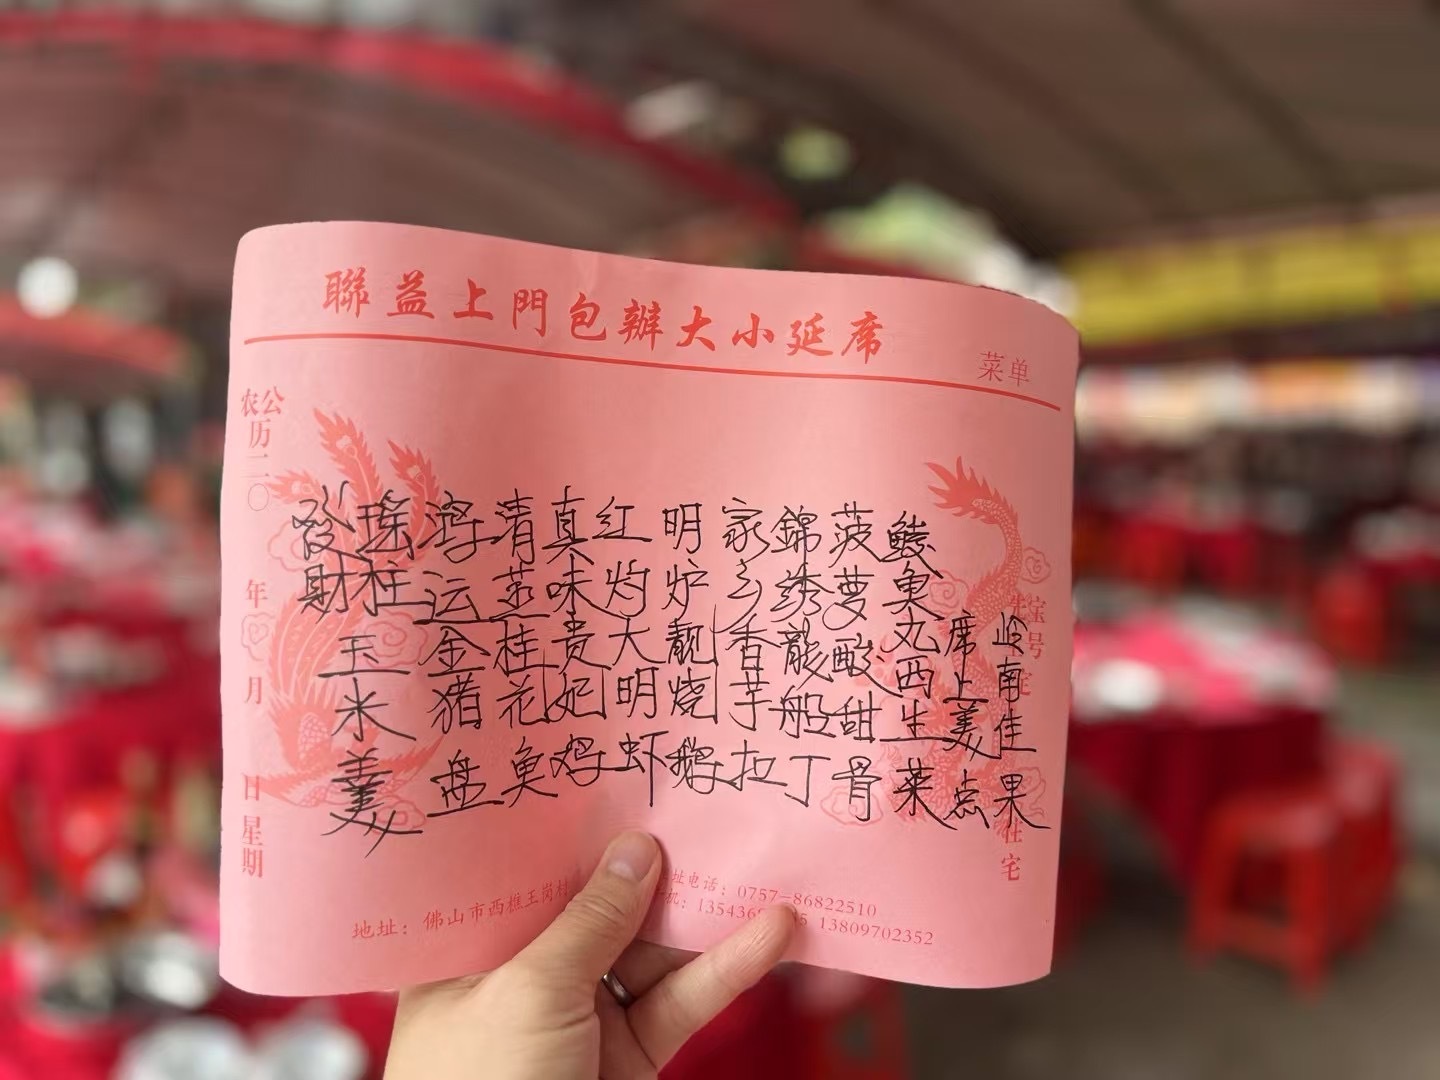 聯益上門包辦大小延席
菜单
公
农历二〇 年 月 日 星期
發財
瑤柱玉米羹
鸿运金猪盘
清蒸桂花鱼
真味贵妃鸡
红灼大明虾
明炉靓烧鹅
家乡香芋拉
錦绣龍船丁
菠萝酸甜骨
鲮鱼丸西生菜
席上美点
岭南佳果
宝号
住宅
地址：佛山市西樵王岗村
电话：0757-86822510
机：13543 13809702352